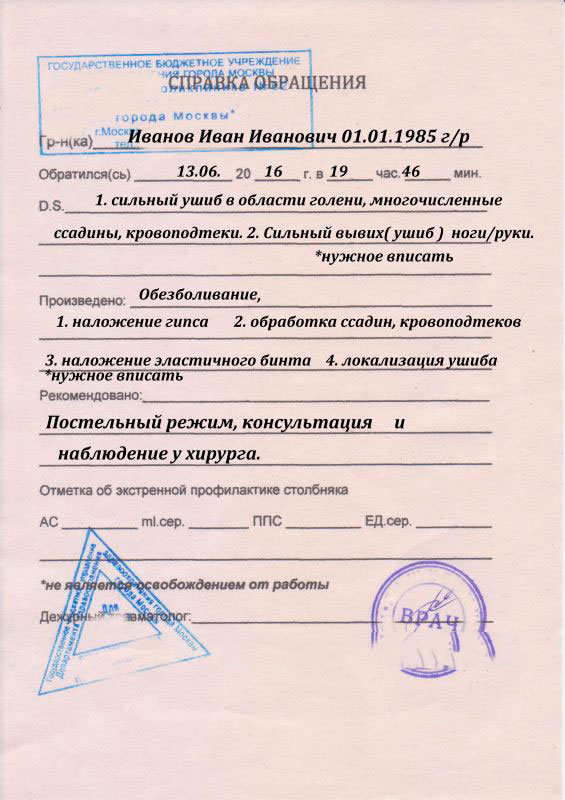 ГОСУДАРСТВЕННОЕ БЮДЖЕТНОЕ УЧРЕЖДЕНИЕ
ГОРОДА МОСКВЫ
СПРАВКА ОБРАЩЕНИЯ
города Москвы"
г.Москва
тел.
Гр-н(ка) Иванов Иван Иванович 01.01.1985 г/р
Обратился(сь) 13.06. 20 16 г. в 19 час. 46 мин.
D.S. 1. сильный ушиб в области голени, многочисленные
ссадины, кровоподтеки. 2. Сильный вывих( ушиб ) ноги/руки.
*нужное вписать
Произведено: Обезболивание,
1. наложение гипса 2. обработка ссадин, кровоподтеков
3. наложение эластичного бинта 4. локализация ушиба
*нужное вписать
Рекомендовано:
Постельный режим, консультация и
наблюдение у хирурга.
Отметка об экстренной профилактике столбняка
АС ml.сер. ППС ЕД.сер.
*не является освобождением от работы
Дежурный травматолог:
Государственное
Департамента здравоохранения
здравоохранения города Москвы
города Москвы
Для
ВРАЧ